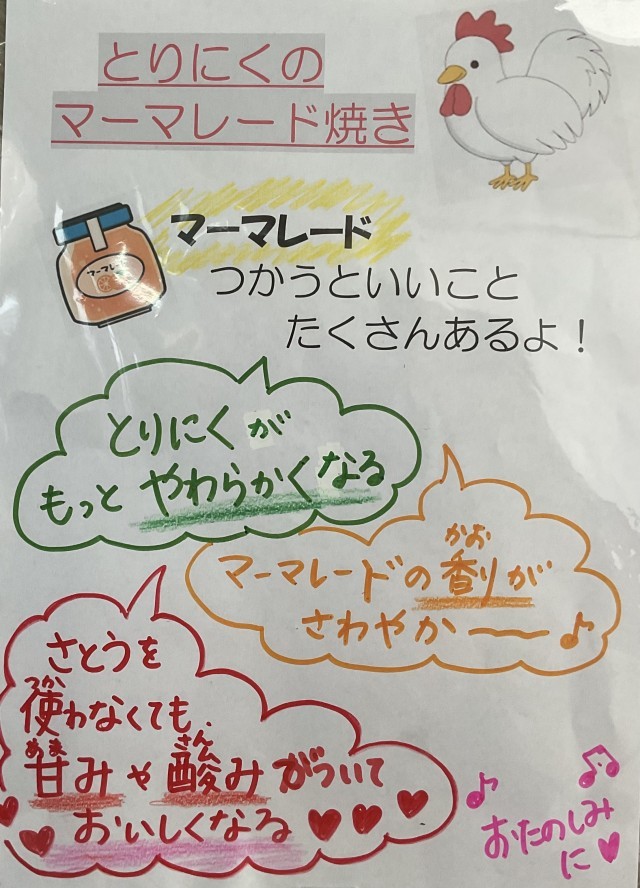 とりにくの
マーマレード焼き
マーマレード
マーマレード
つかうといいこと
たくさんあるよ！
とりにくが
もっとやわらかくなる
かお
マーマレードの香りが
さわやか〜♪
さとうを
つか
使わなくても、
あま さん
甘みや酸みがついて
おいしくなる
♪ ♫
おたのしみ
に♥